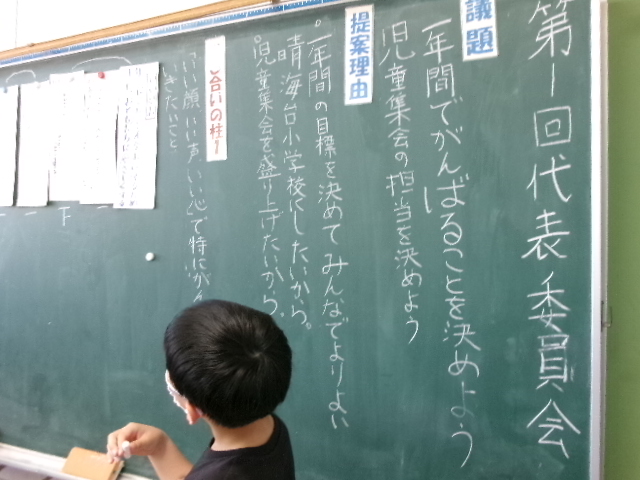 第1回代表委員会
議題
一年間でがんばることを決めよう
児童集会の担当を決めよう
提案理由
。一年間の目標を決めてみんなでよりよい
晴海台小学校にしたいから。
。児童集会を盛り上げたいから。
合いの柱1
「いい顔いい声いい心」で特にがん
いきたいこと